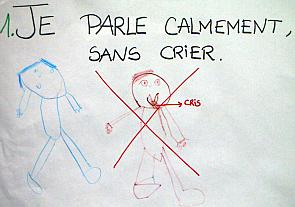 1. JE PARLE CALMEMENT,
SANS CRIER.
CRIS